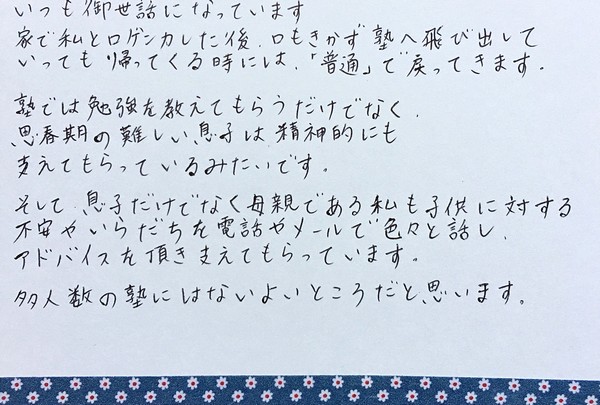 いつも御世話になっています
家で私と口ゲンカした後、口もきかず塾へ飛び出して
いっても帰ってくる時には、「普通」で戻ってきます。
塾では勉強を教えてもらうだけでなく、
思春期の難しい息子は精神的にも
支えてもらっているみたいです。
そして、息子だけでなく母親である私も子供に対する
不安やいらだちを電話やメールで色々と話し、
アドバイスを頂き支えてもらっています。
多人数の塾にはないよいところだと思います。